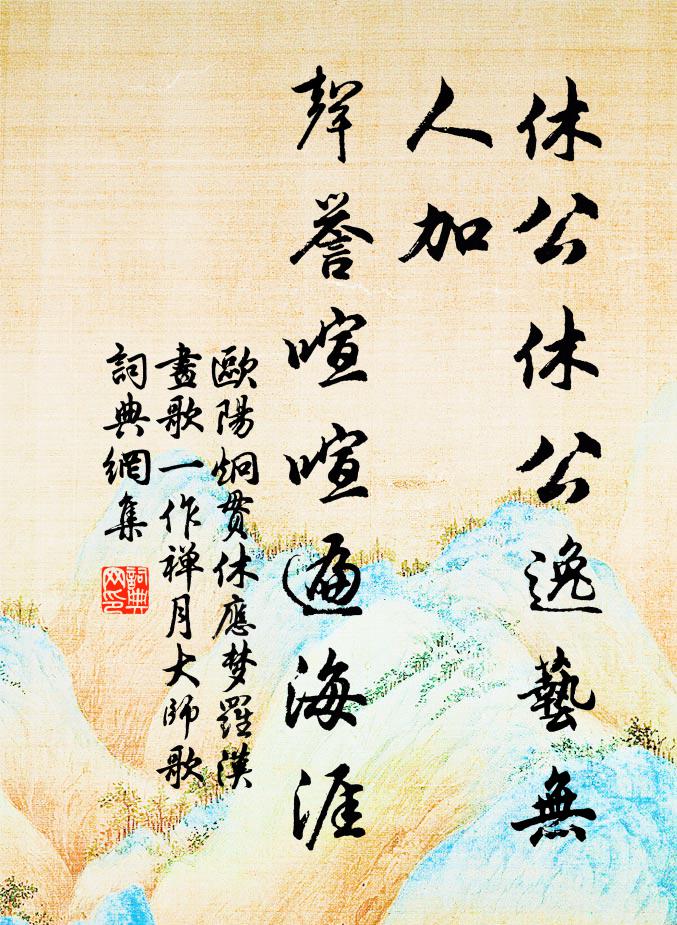 休公休公逸藝無
人加
聲譽喧喧遍海涯
歐陽炯貫休應梦羅漢
畫歌一作禅月大师歌
詞典網集
詞典
网印